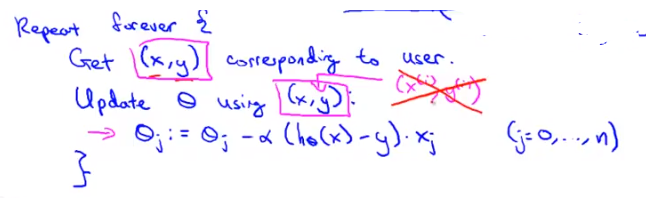 Repeat forever {
Get (x,y) corresponding to user.
Update θ using (x,y): (x⁽ⁱ⁾, y⁽ⁱ⁾)
→ θⱼ := θⱼ - α (hθ(x) - y) · xⱼ (j=0,...,n)
}